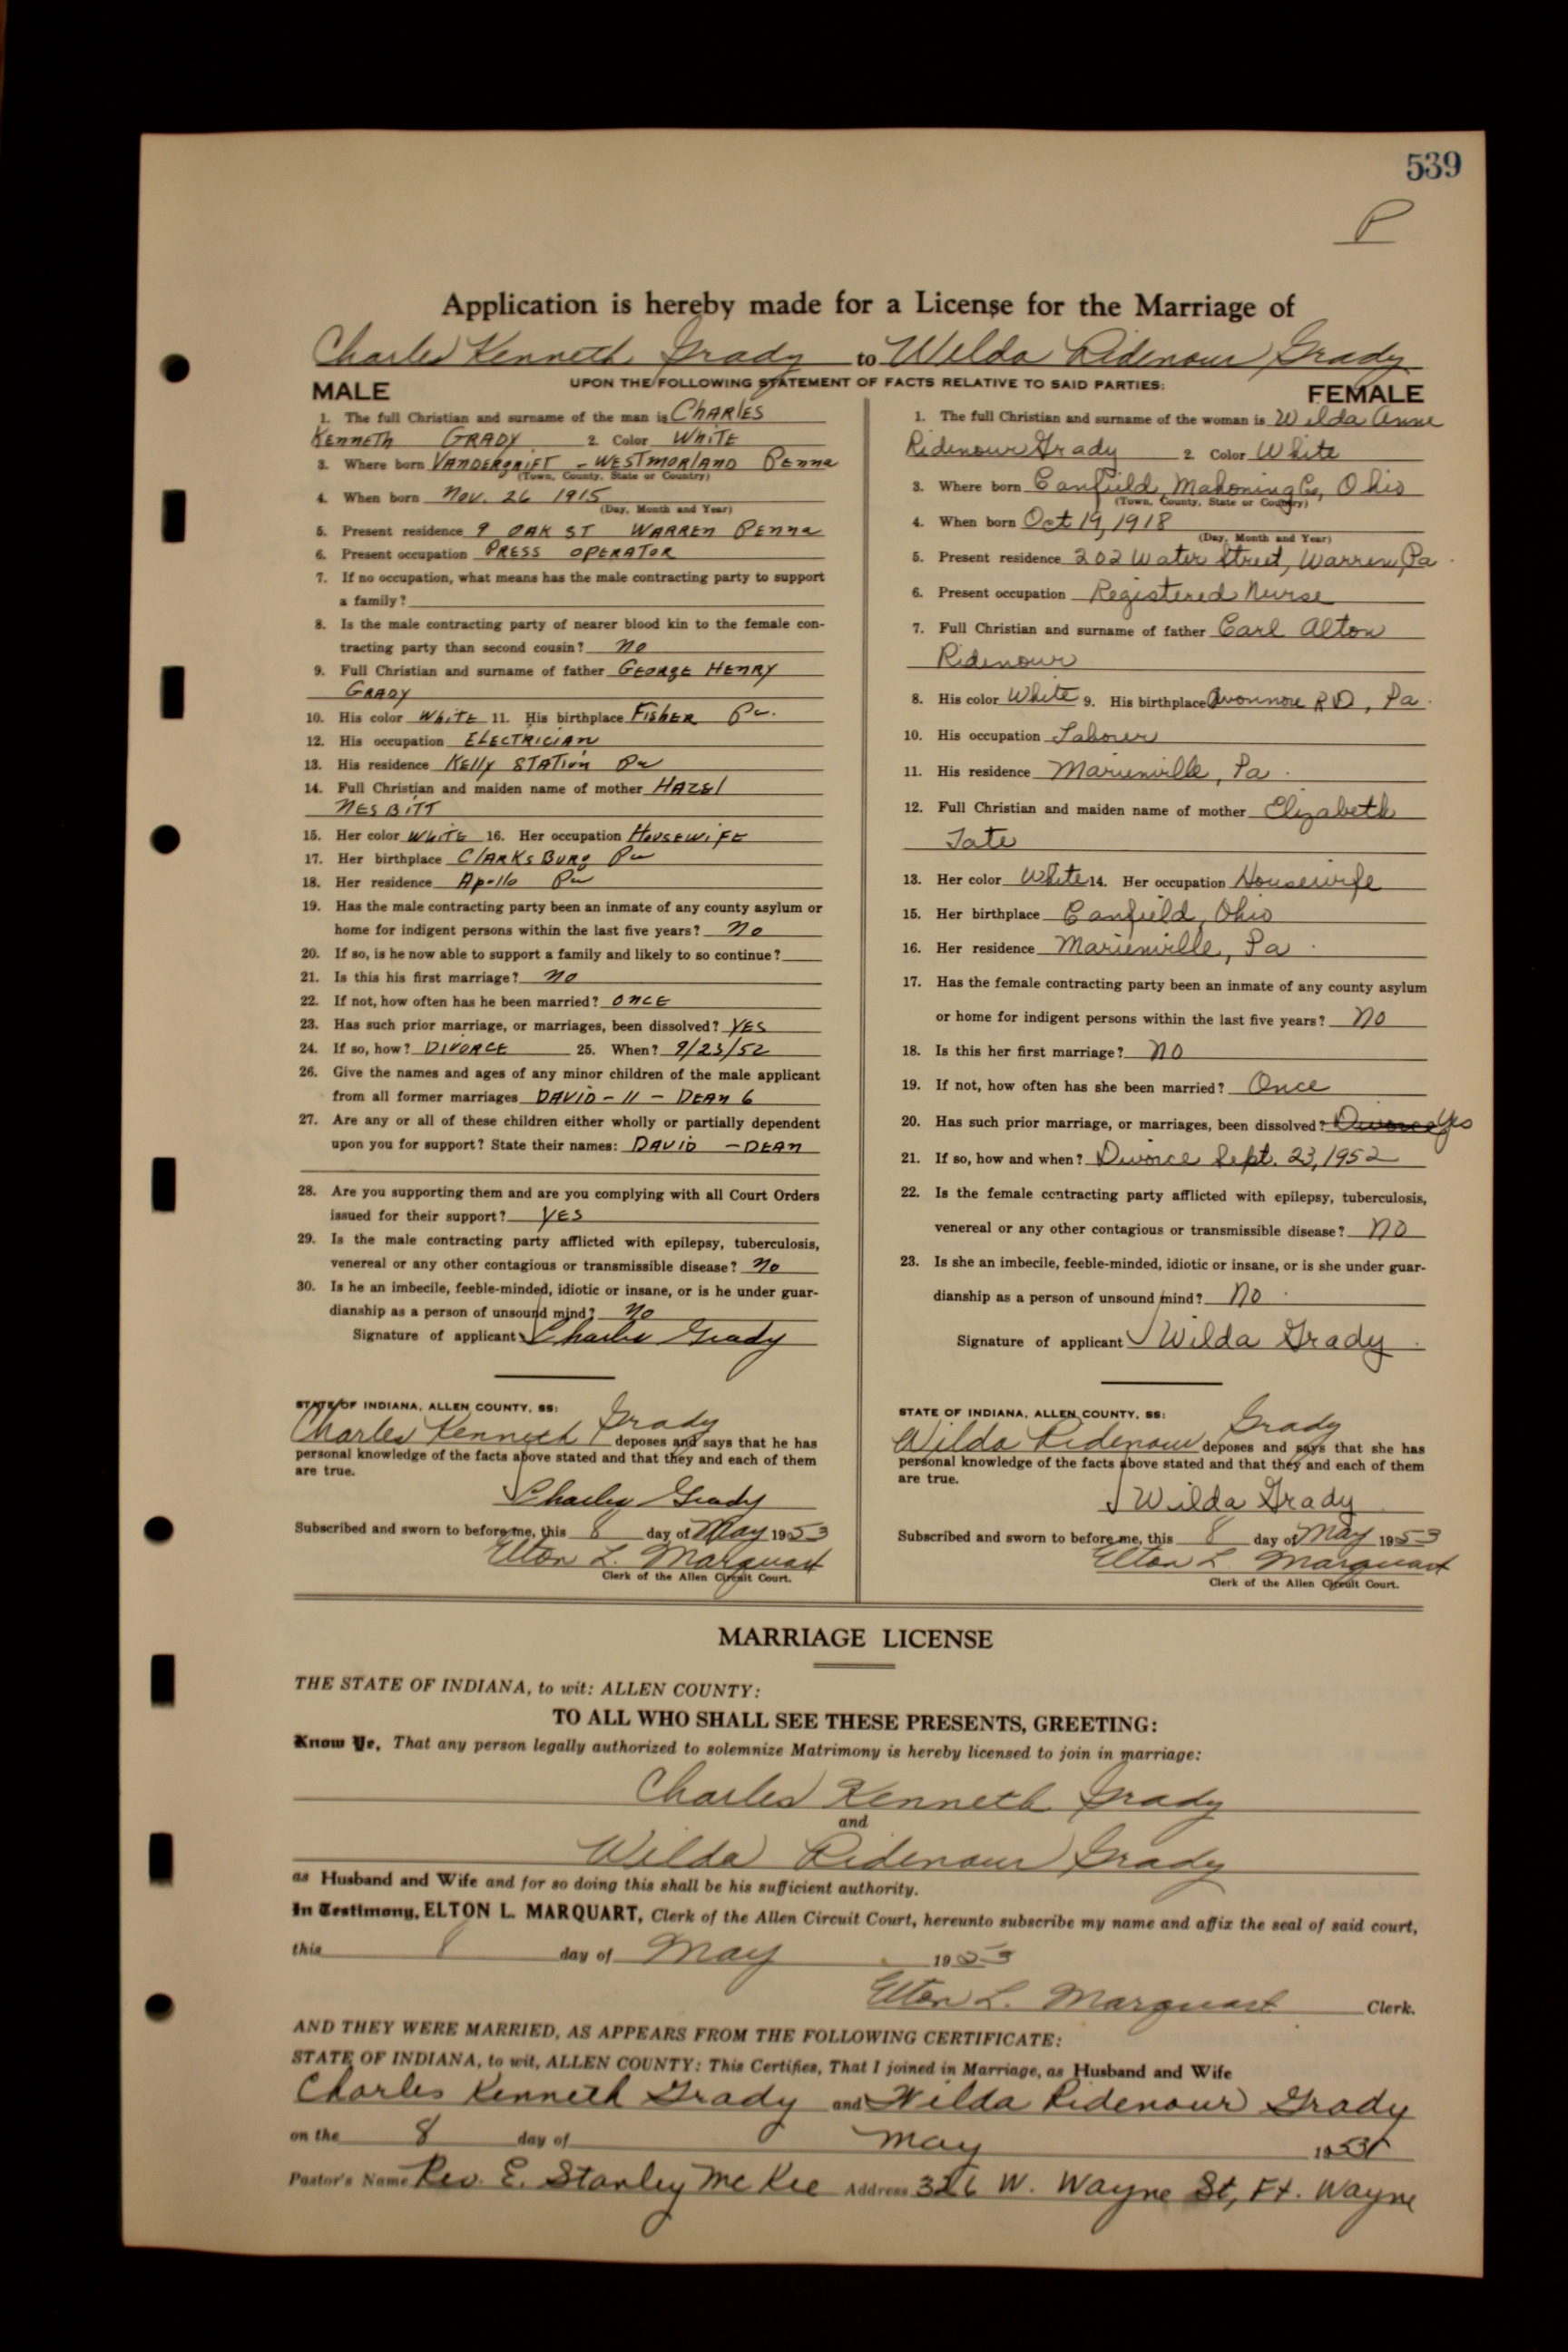 539
P
Application is hereby made for a License for the Marriage of
Charles Kenneth Grady to Wilda Ridenour Grady
UPON THE FOLLOWING STATEMENT OF FACTS RELATIVE TO SAID PARTIES:
MALE
1. The full Christian and surname of the man is CHARLES
KENNETH GRADY 2. Color WHITE
3. Where born VANDERGRIFT - WESTMORLAND Penna
(Town, County, State or Country)
4. When born Nov. 26 1915
(Day, Month and Year)
5. Present residence 9 OAK ST WARREN Penna
6. Present occupation PRESS OPERATOR
7. If no occupation, what means has the male contracting party to support
a family?
8. Is the male contracting party of nearer blood kin to the female con-
tracting party than second cousin? no
9. Full Christian and surname of father GEORGE HENRY
GRADY
10. His color WHITE 11. His birthplace FISHER Pa.
12. His occupation ELECTRICIAN
13. His residence KELLY STATION Pa
14. Full Christian and maiden name of mother HAZEL
NESBITT
15. Her color WHITE 16. Her occupation HOUSEWIFE
17. Her birthplace CLARKSBURG Pa
18. Her residence Apollo Pa
19. Has the male contracting party been an inmate of any county asylum or
home for indigent persons within the last five years? no
20. If so, is he now able to support a family and likely to so continue?
21. Is this his first marriage? no
22. If not, how often has he been married? ONCE
23. Has such prior marriage, or marriages, been dissolved? YES
24. If so, how? DIVORCE 25. When? 9/23/52
26. Give the names and ages of any minor children of the male applicant
from all former marriages DAVID - 11 - DEAN 6
27. Are any or all of these children either wholly or partially dependent
upon you for support? State their names: DAVID - DEAN
28. Are you supporting them and are you complying with all Court Orders
issued for their support? YES
29. Is the male contracting party afflicted with epilepsy, tuberculosis,
venereal or any other contagious or transmissible disease? no
30. Is he an imbecile, feeble-minded, idiotic or insane, or is he under guar-
dianship as a person of unsound mind? no
Signature of applicant Charles Grady
STATE OF INDIANA, ALLEN COUNTY, SS:
Charles Kenneth Grady deposes and says that he has
personal knowledge of the facts above stated and that they and each of them
are true.
Charles Grady
Subscribed and sworn to before me, this 8 day of May 1953
Elton L. Marquart
Clerk of the Allen Circuit Court.
FEMALE
1. The full Christian and surname of the woman is Wilda Anne
Ridenour Grady 2. Color White
3. Where born Canfield, Mahoning Co, Ohio
(Town, County, State or Country)
4. When born Oct 19, 1918
(Day, Month and Year)
5. Present residence 202 Water Street, Warren, Pa
6. Present occupation Registered Nurse
7. Full Christian and surname of father Carl Alton
Ridenour
8. His color White 9. His birthplace Avonmore RD, Pa.
10. His occupation Laborer
11. His residence Marienville, Pa.
12. Full Christian and maiden name of mother Elizabeth
Tate
13. Her color White 14. Her occupation Housewife
15. Her birthplace Canfield, Ohio
16. Her residence Marienville, Pa.
17. Has the female contracting party been an inmate of any county asylum
or home for indigent persons within the last five years? no
18. Is this her first marriage? no
19. If not, how often has she been married? Once
20. Has such prior marriage, or marriages, been dissolved? Yes
21. If so, how and when? Divorce Sept. 23, 1952
22. Is the female contracting party afflicted with epilepsy, tuberculosis,
venereal or any other contagious or transmissible disease? no
23. Is she an imbecile, feeble-minded, idiotic or insane, or is she under guar-
dianship as a person of unsound mind? no
Signature of applicant Wilda Grady
STATE OF INDIANA, ALLEN COUNTY, SS:
Wilda Ridenour Grady deposes and says that she has
personal knowledge of the facts above stated and that they and each of them
are true.
Wilda Grady
Subscribed and sworn to before me, this 8 day of May 1953
Elton L. Marquart
Clerk of the Allen Circuit Court.
MARRIAGE LICENSE
THE STATE OF INDIANA, to wit: ALLEN COUNTY:
TO ALL WHO SHALL SEE THESE PRESENTS, GREETING:
Know Ye, That any person legally authorized to solemnize Matrimony is hereby licensed to join in marriage:
Charles Kenneth Grady
and
Wilda Ridenour Grady
as Husband and Wife and for so doing this shall be his sufficient authority.
In Testimony, ELTON L. MARQUART, Clerk of the Allen Circuit Court, hereunto subscribe my name and affix the seal of said court,
this 8 day of May 1953
Elton L. Marquart Clerk.
AND THEY WERE MARRIED, AS APPEARS FROM THE FOLLOWING CERTIFICATE:
STATE OF INDIANA, to wit, ALLEN COUNTY: This Certifies, That I joined in Marriage, as Husband and Wife
Charles Kenneth Grady and Wilda Ridenour Grady
on the 8 day of May 1953
Pastor's Name Rev. E. Stanley McKee Address W. Wayne St, Ft. Wayne